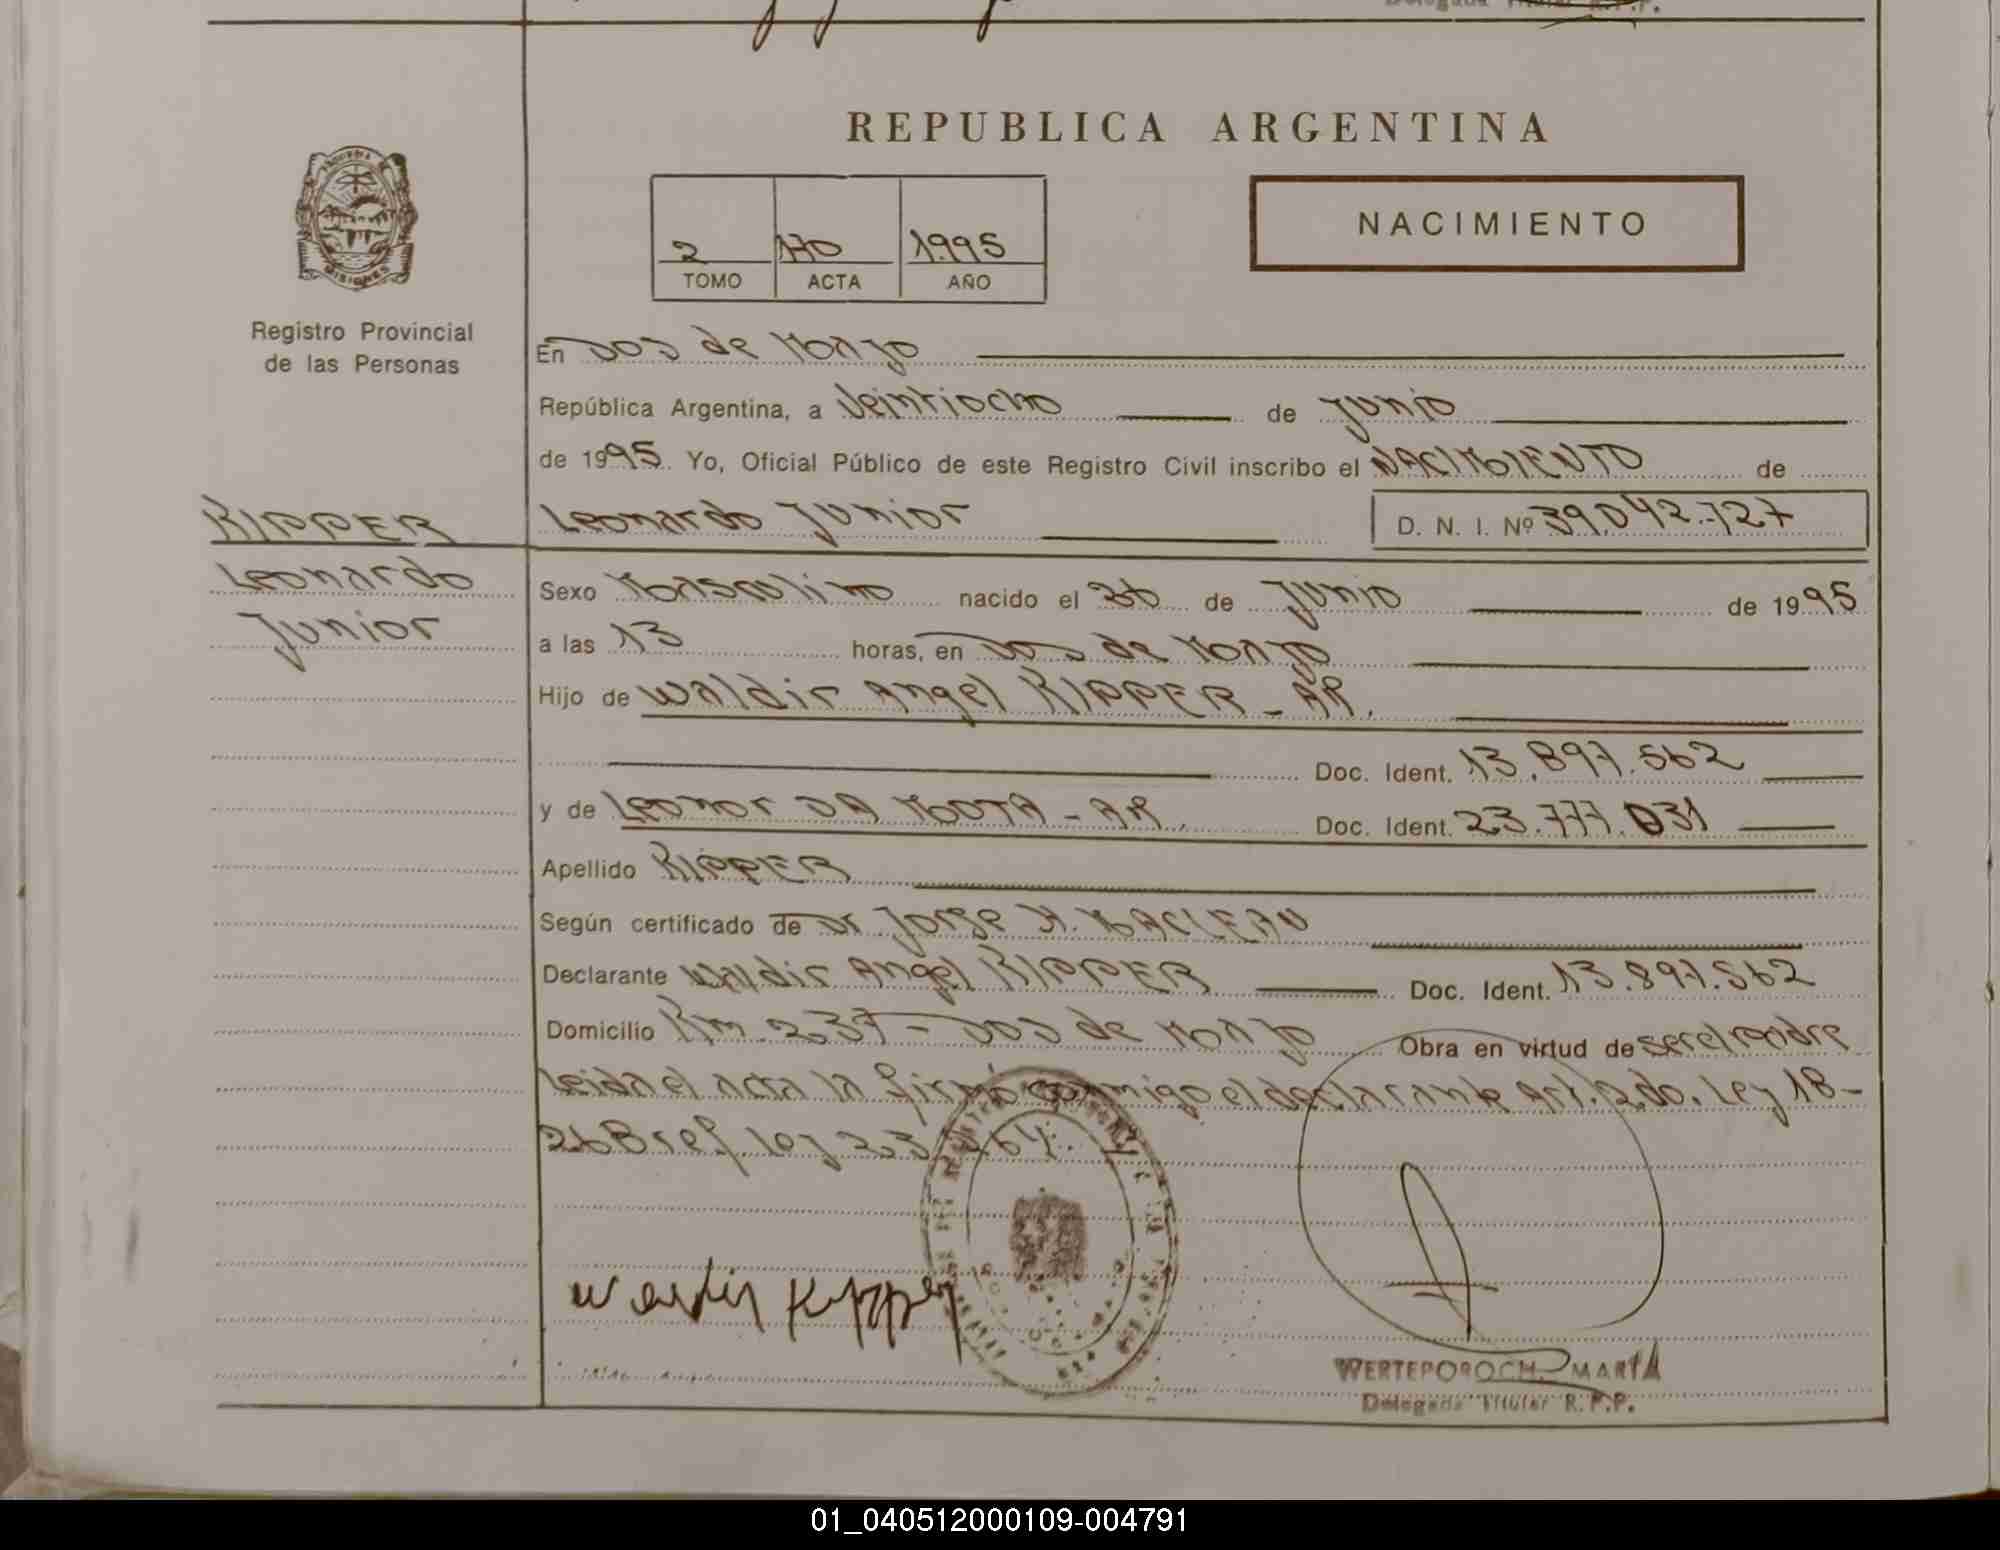 REPUBLICA ARGENTINA
NACIMIENTO
MISIONES
2 170 1995
TOMO ACTA AÑO
Registro Provincial
de las Personas
En Dos de Mayo
República Argentina, a Veintiocho de Junio
de 1995 Yo, Oficial Público de este Registro Civil inscribo el NACIMIENTO de
RIPPER
Leonardo
Junior
Leonardo Junior D. N. I. Nº 39.042.727
Sexo Masculino nacido el 26 de Junio de 1995
a las 13 horas, en Dos de Mayo
Hijo de Waldir Angel RIPPER - AR.
Doc. Ident. 13.897.562
y de Leonor DA MOTA - AR. Doc. Ident. 23.777.031
Apellido RIPPER
Según certificado de Dr Jorge H. MACLEAN
Declarante Waldir Angel RIPPER Doc. Ident. 13.897.562
Domicilio Km. 237 - Dos de Mayo Obra en virtud de ser el padre
Leida el acta la firmó conmigo el declarante Art. 2do. Ley 18-
26B ref. ley 23.264.
Waldir Ripper
WERTEPOROCH MARTA
Delegada Titular R.P.P.
01_040512000109-004791